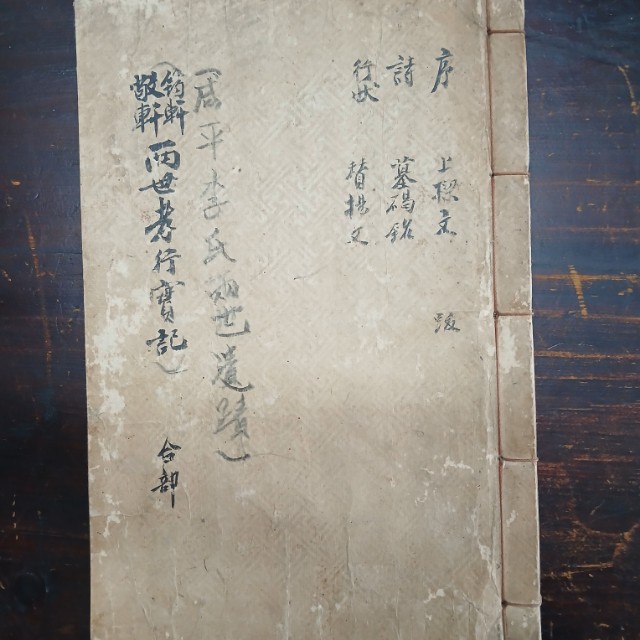 序 上樑文 跋
詩 墓碣銘
行狀 贊揚文
(咸平李氏兩世遺蹟)
(約軒
敬軒
兩世孝行實記) 合部